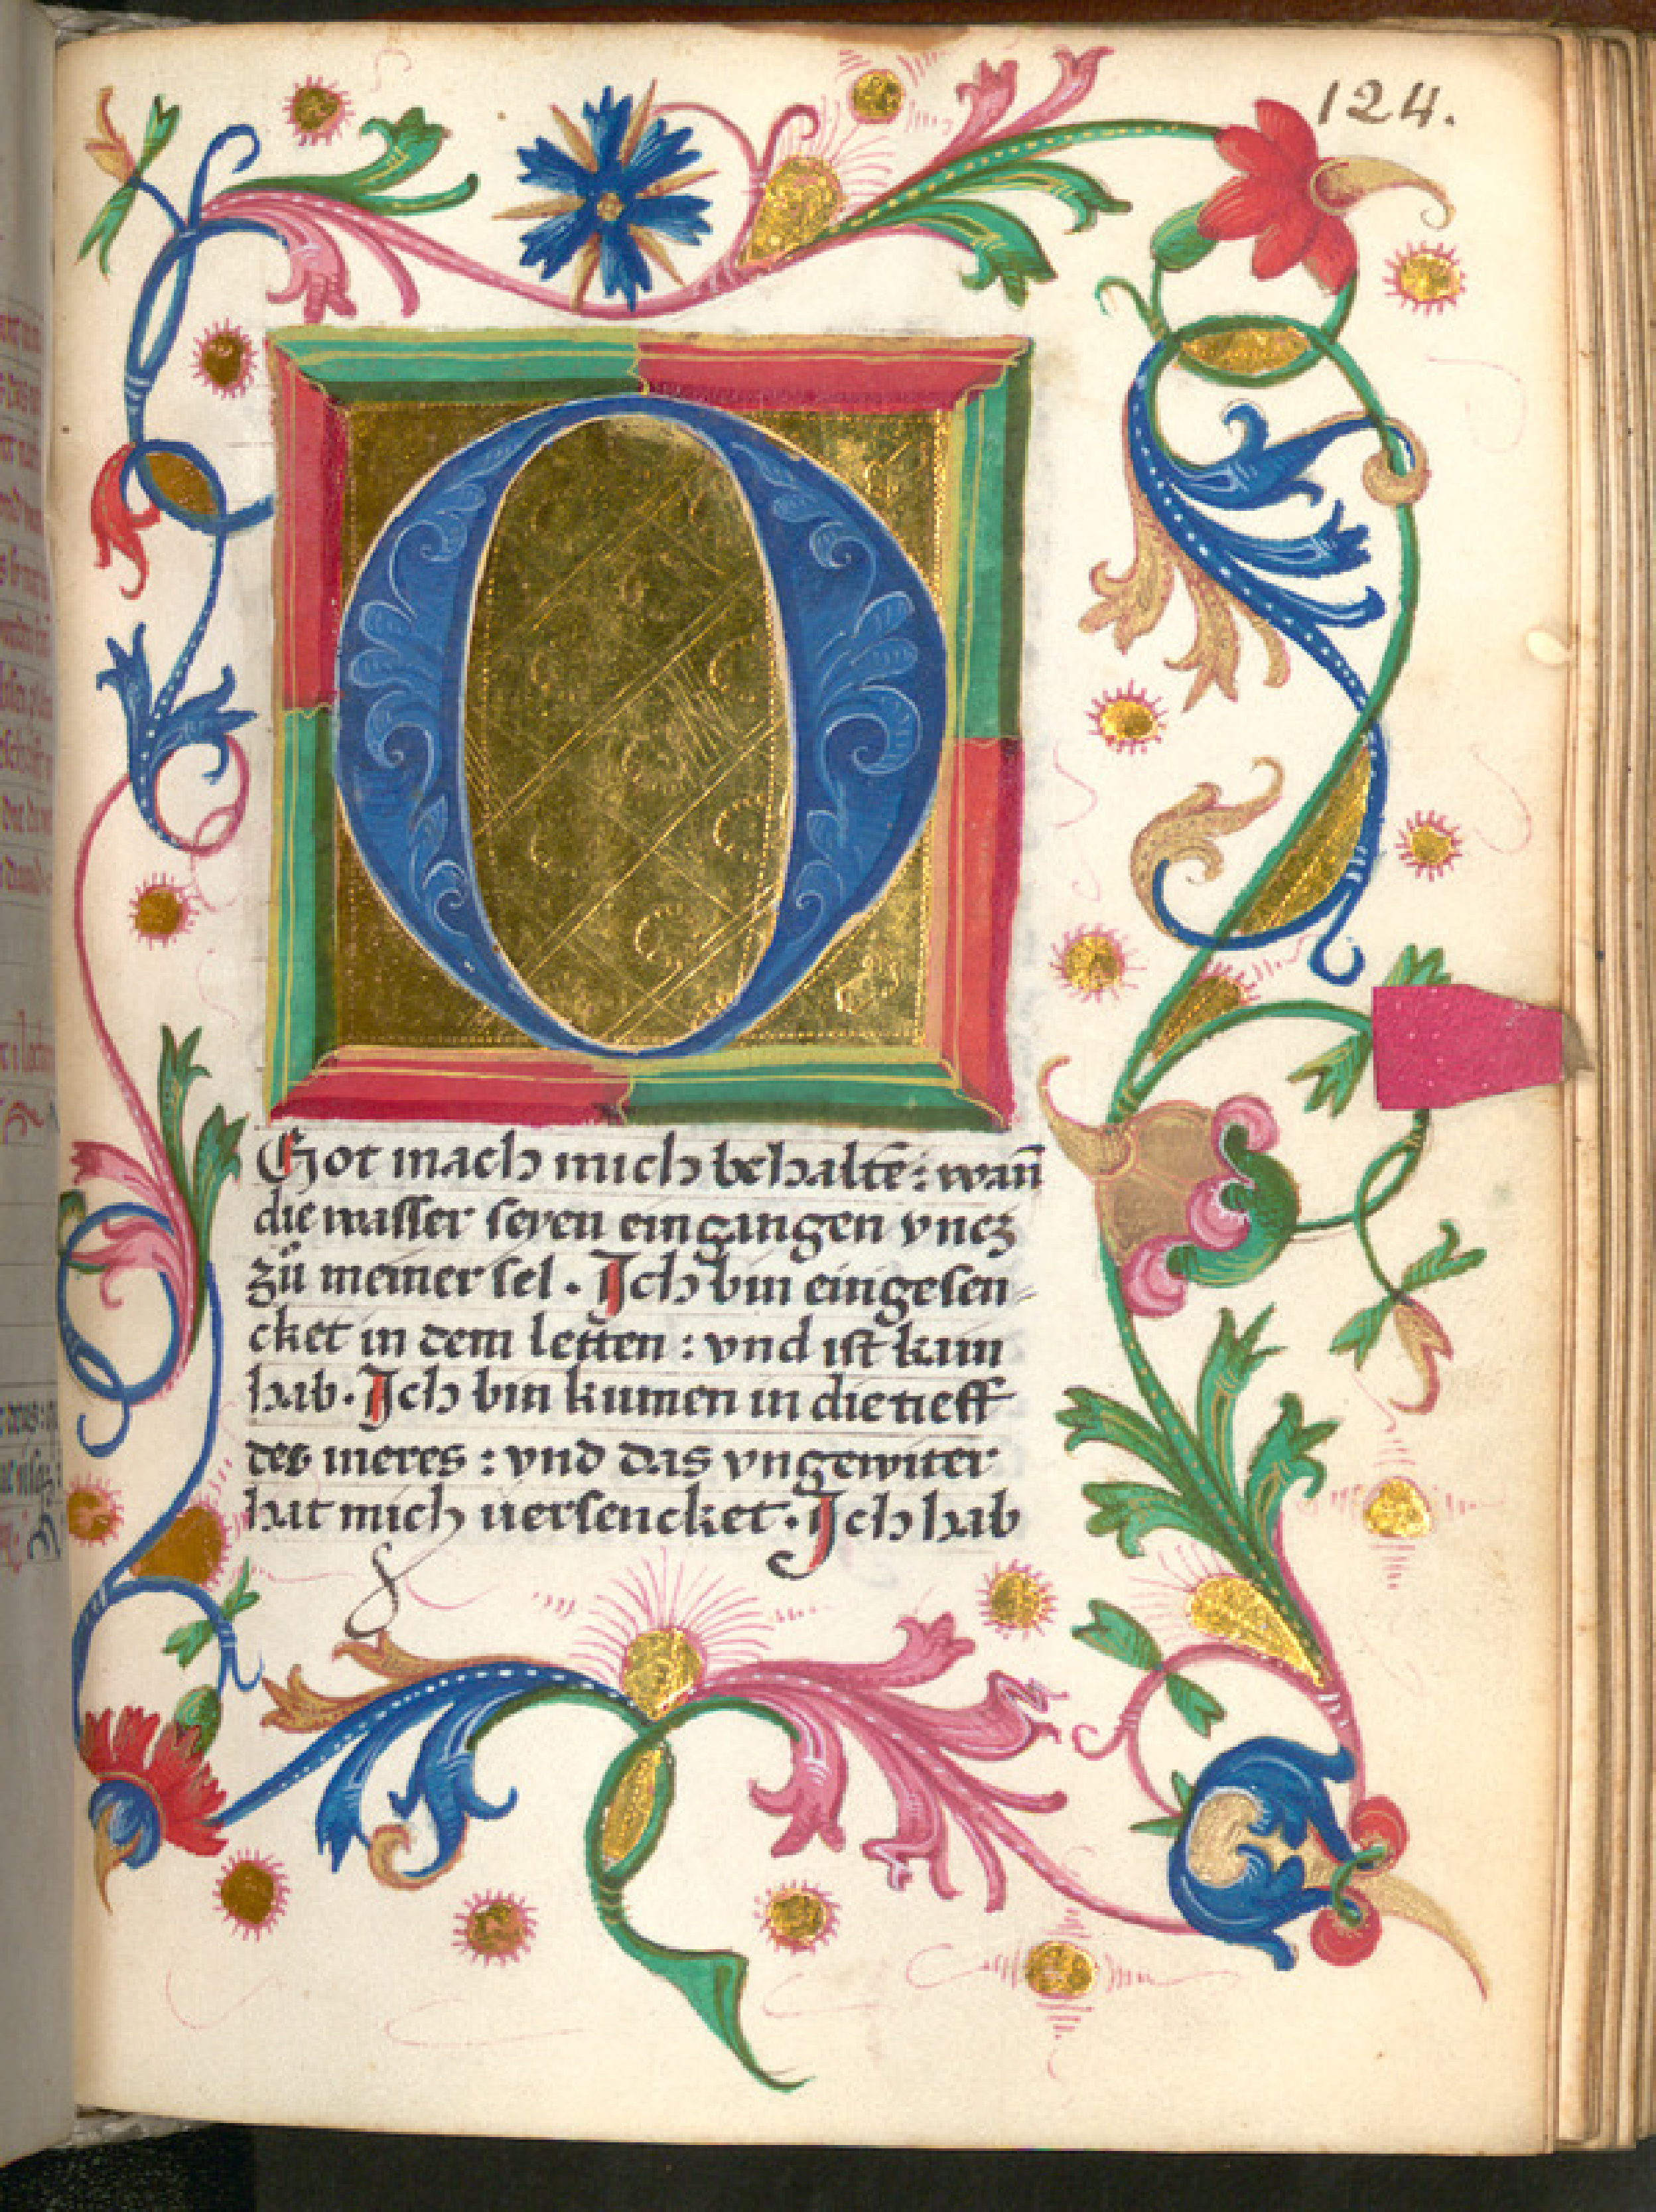 124.
O
Got mach mich behaltē: wan̄
die wasser seyen eingangen vncz
zů meiner sel. Ich bin eingesen⸗
cket in dem letten: vnd ist kain
hab. Ich bin kumen in die tieff
des meres: vnd das vngewiter
hat mich versencket. Ich hab